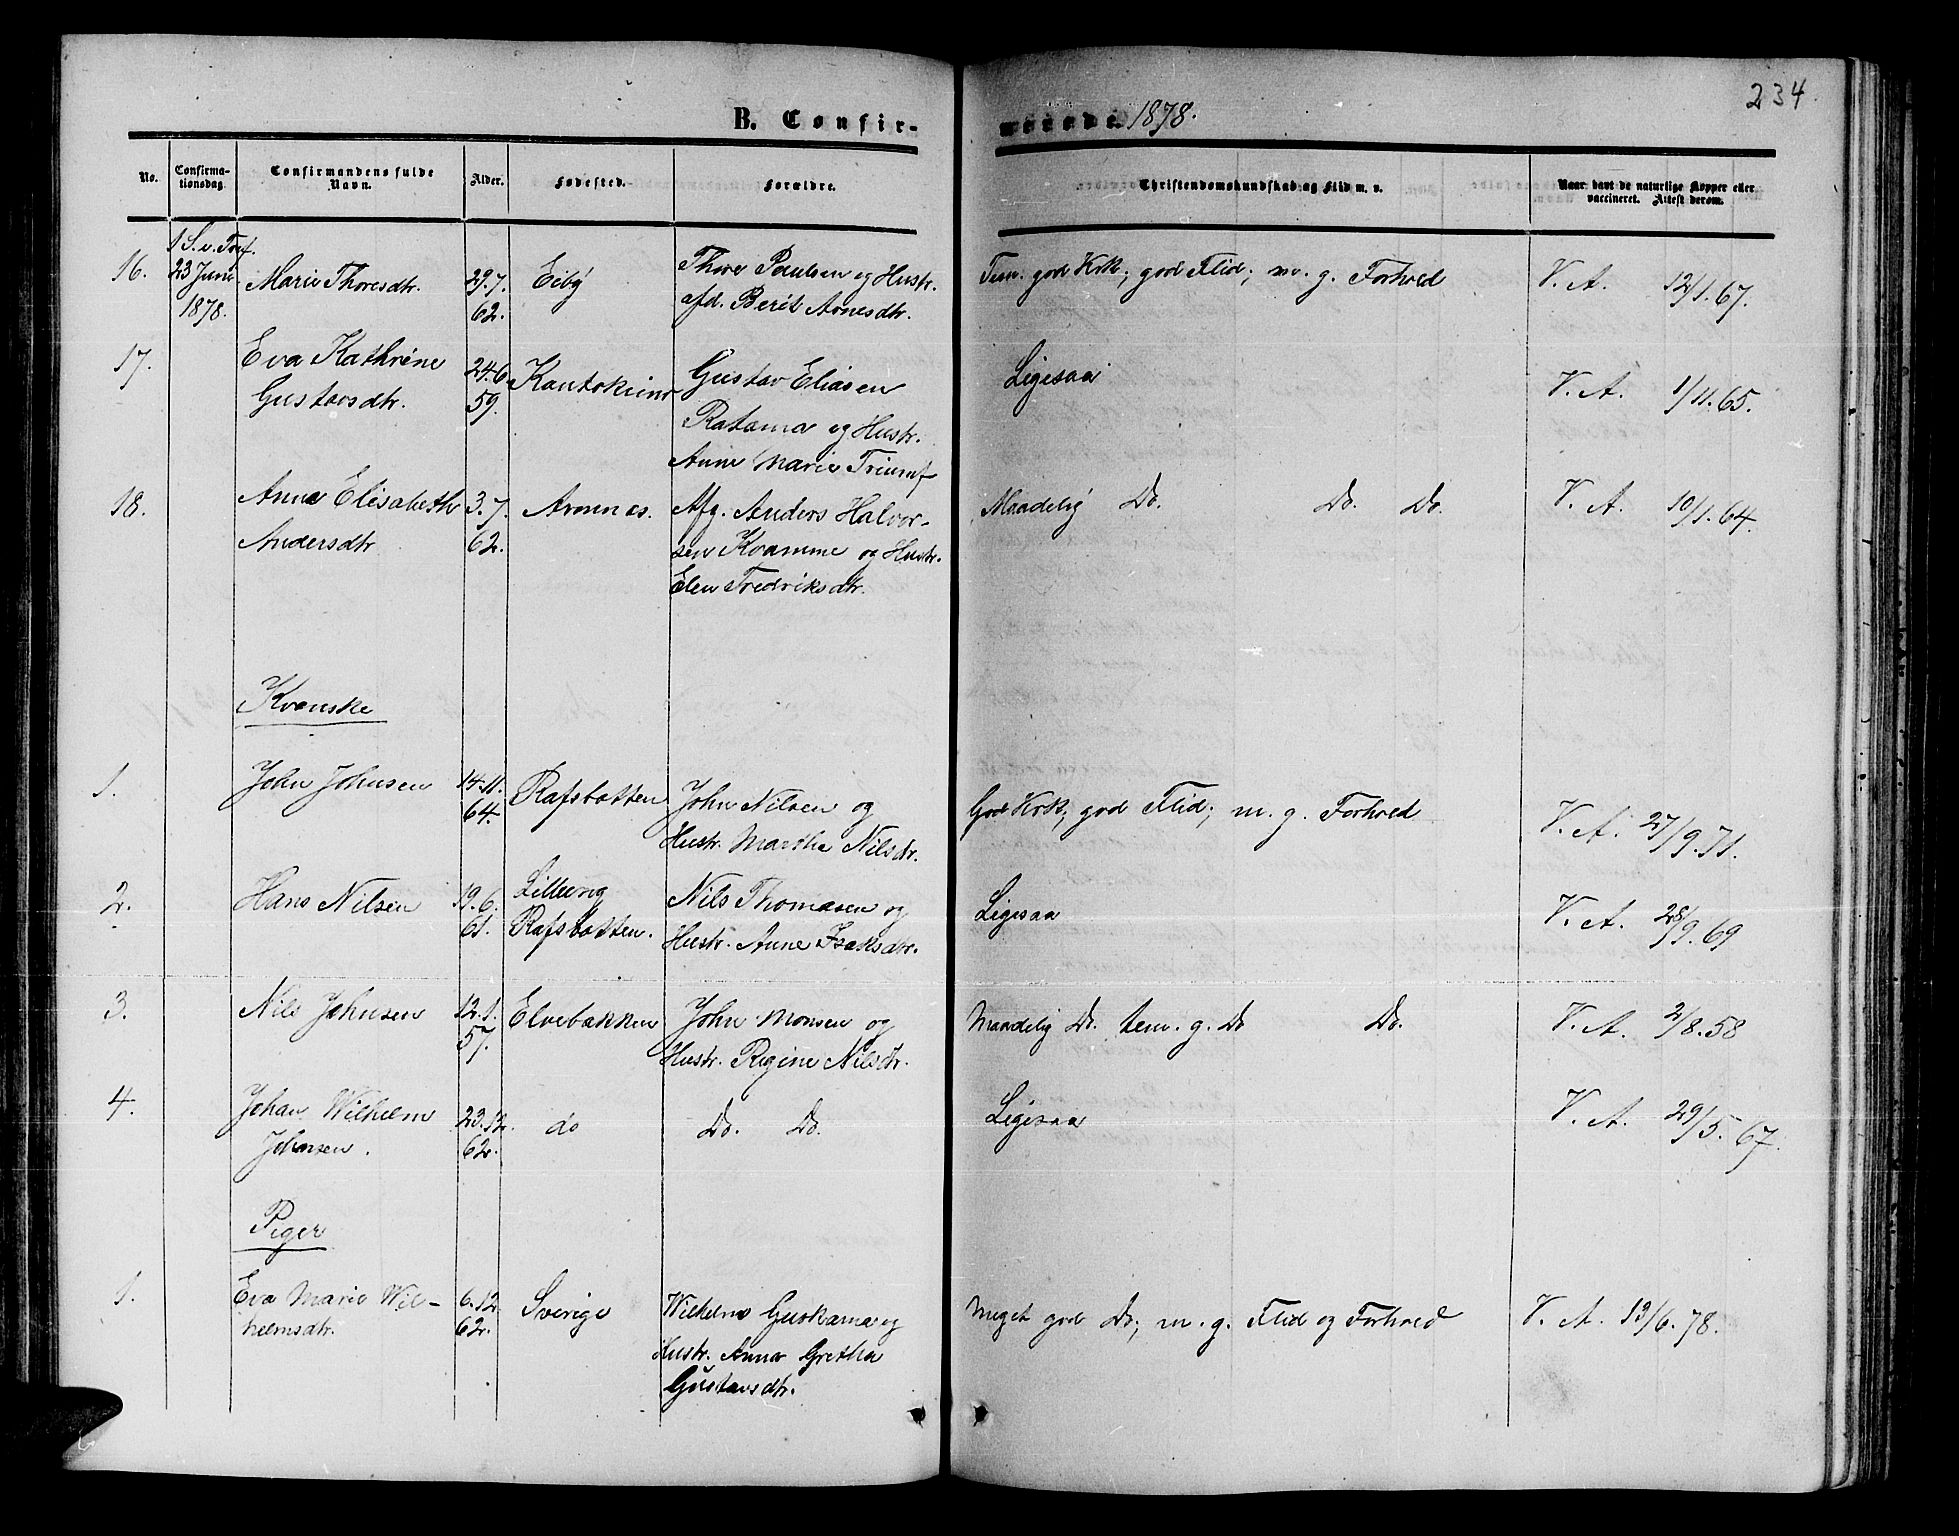 234.
B. Confir-
merede. 1878.
No.
Confirma-
tionsdag.
Confirmandens fulde
Navn.
Alder.
Fødested.
Forældre.
Christendomskundskab og Flid m. v.
Naar havt de naturlige Kopper eller
vaccineret. Attest derom.
16.
1 S. e. Tref.
23 Juni
1878.
Marie Thoresdtr.
29.7.
62.
Eiby
Thore Paulsen og Hustr.
afd. Berit Arnesdtr.
Tem. god Krk; god Flid; m. g. Forhold
V. A. 12/1. 67.
17.
Eva Kathrine
Gustavsdtr.
24.6.
59.
Kautokeino
Gustav Eliasen
Ratama og Hustr.
Anne Marie Triumf
Ligesaa
V. A. 1/11. 65.
18.
Anna Elisabeth
Andersdtr
3.7.
62.
Aronnes.
Afg. Anders Halvor-
sen Kvamme og Hustr.
Elen Fredriksdtr.
Maadelig Do. Do. Do.
V. A. 10/1. 64.
Kvænske
1.
John Johnsen
14.11.
64.
Rafsbotten
John Nilsen og
Hustr. Martha Nilsdtr.
God Krk; god Flid; m. g. Forhold
V. A. 27/9. 71.
2.
Hans Nilsen
19.6.
61.
Rafsbotten.
Nils Thomasen og
Hustr. Anne Isaksdtr.
Ligesaa
V. A. 28/9. 69
3.
Nils Johnsen
12.1.
57.
Elvebakken
John Monsen og
Hustr. Regine Nilsdtr.
Maadelig Do. tem. g. Do Do.
V. A. 2/8. 58
4.
Johan Wilhelm
Johnsen.
23.12.
62.
do
Do. Do.
Ligesaa
V. A. 29/5. 67.
Piger
1.
Eva Marie Wil-
helmsdtr.
6.12.
62.
Sverige
Wilhelm Guskama og
Hustr. Anna Gretha
Gustavsdtr.
Meget god Do; m. g. Flid og Forhold
V. A. 13/6. 78.